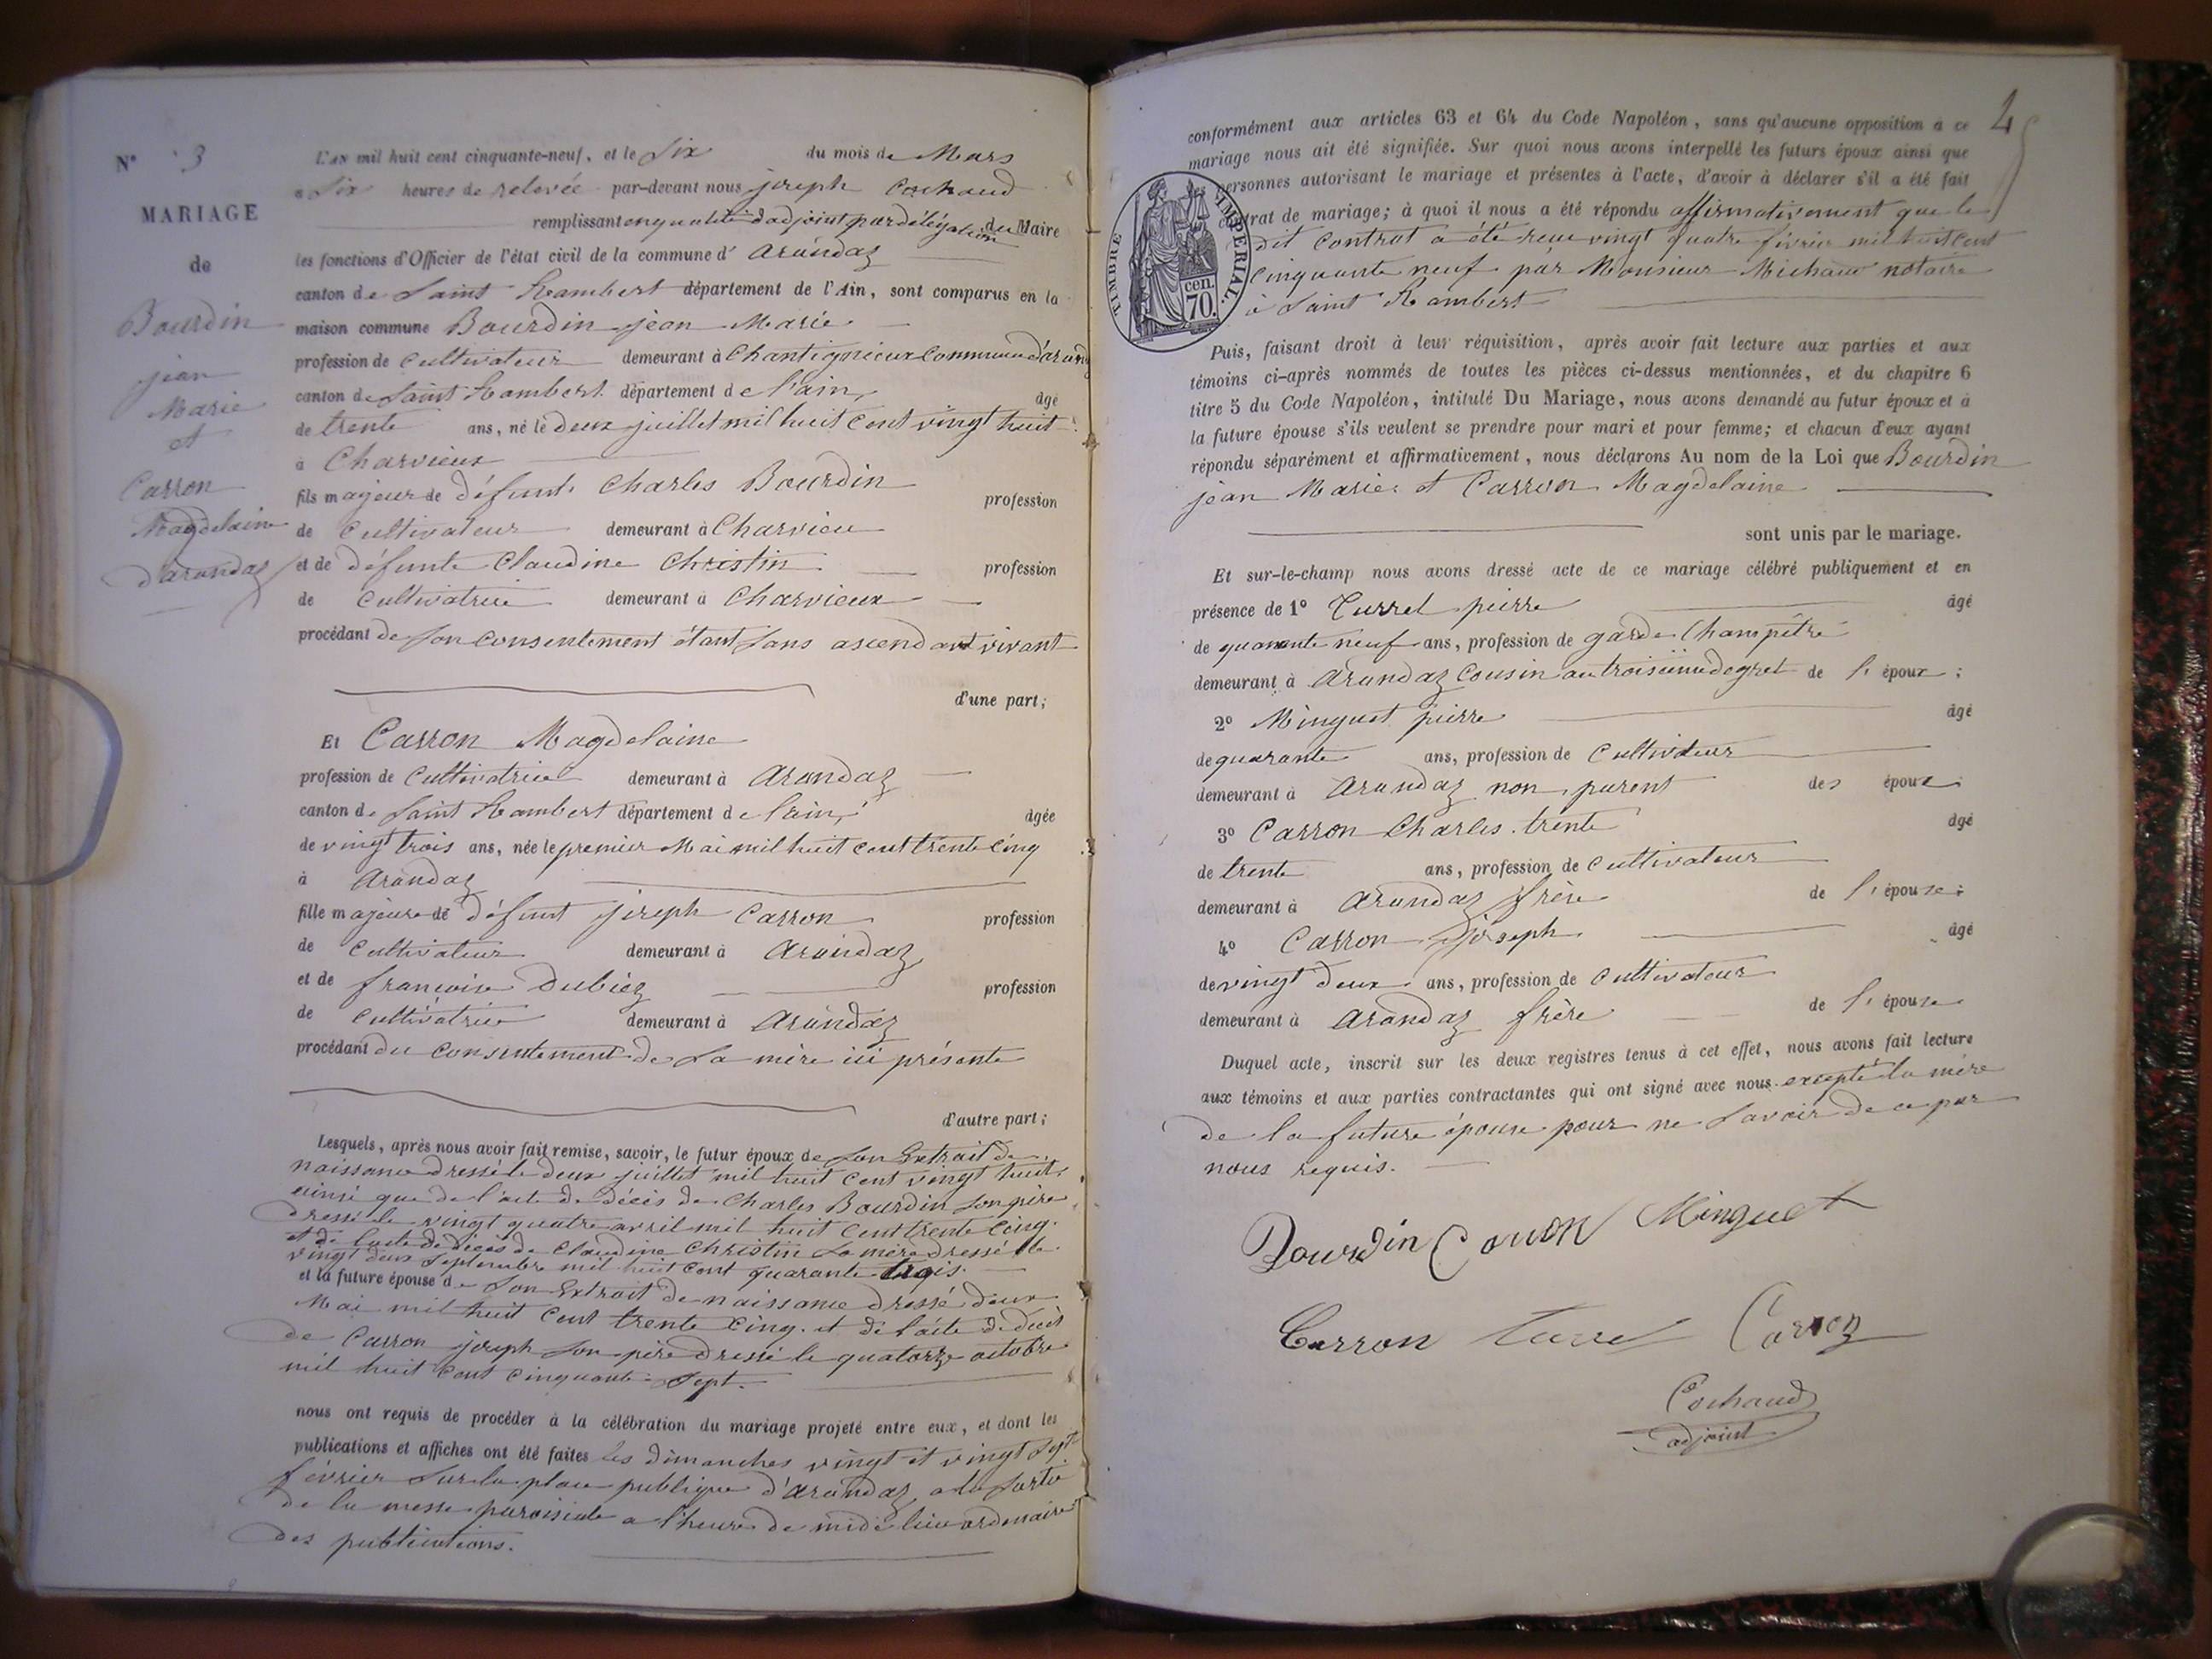 N° 3
MARIAGE
de
Bourdin
jean
Marie
et
Carron
Magdelaine
d'arandaz
L'AN mil huit cent cinquante-neuf, et le Six du mois de Mars
a Six heures de relevée par-devant nous joseph Cochaud
remplissant en qualité d'adjoint par délégation du Maire
les fonctions d'Officier de l'état civil de la commune d' arandaz
canton de Saint Rambert département de l'Ain, sont comparus en la
maison commune Bourdin jean Marie
profession de cultivateur demeurant à Chantignieux Commune d'arand
canton de Saint Rambert département de l'ain, âgé
de trente ans, né le deux juillet mil huit cent vingt huit
à Charvieux
fils majeur de défunt Charles Bourdin profession
de cultivateur demeurant à Charvieu
et de défunte Claudine Christin profession
de cultivatrice demeurant à Charvieux
procédant de son consentement étant sans ascendant vivant
d'une part;
Et Carron Magdelaine
profession de cultivatrice demeurant à Arandaz
canton de Saint Rambert département de l'ain, âgée
de vingt trois ans, née le premier Mai mil huit cent trente cinq
à Arandaz
fille majeure de défunt joseph Carron profession
de cultivateur demeurant à Arandaz
et de francoise Dubiez profession
de cultivatrice demeurant à Arandaz
procédant du consentement de sa mère ici présente
d'autre part;
Lesquels, après nous avoir fait remise, savoir, le futur époux de son Extrait de
naissance dressé le deux juillet mil huit cent vingt huit
ainsi que de l'acte de décès de Charles Bourdin son père
dressé le vingt quatre avril mil huit cent trente cinq.
et de l'acte de décès de Claudine Christin sa mère dressé le
vingt deux septembre mil huit cent quarante trois.
et la future épouse de son Extrait de naissance dressé deux
Mai mil huit cent trente cinq. et de l'acte de décès
de Carron joseph son père dressé le quatorze octobre
mil huit cent cinquante sept.
nous ont requis de procéder à la célébration du mariage projeté entre eux, et dont les
publications et affiches ont été faites les dimanches vingt et vingt sept
février sur la place publique d'arandaz a la sortie
de la messe paroisiale a l'heure de midi lieu ordenaire
des publications.
4
conformément aux articles 63 et 64 du Code Napoléon, sans qu'aucune opposition à ce
mariage nous ait été signifiée. Sur quoi nous avons interpellé les futurs époux ainsi que
les personnes autorisant le mariage et présentes à l'acte, d'avoir à déclarer s'il a été fait
contrat de mariage; à quoi il nous a été répondu affirmativement que le
dit contrat a été reçu vingt quatre février mil huit cent
cinquante neuf par Monsieur Michaud notaire
à Saint Rambert
TIMBRE IMPERIAL.
cen.
70.
Puis, faisant droit à leur réquisition, après avoir fait lecture aux parties et aux
témoins ci-après nommés de toutes les pièces ci-dessus mentionnées, et du chapitre 6
titre 5 du Code Napoléon, intitulé Du Mariage, nous avons demandé au futur époux et à
la future épouse s'ils veulent se prendre pour mari et pour femme; et chacun d'eux ayant
répondu séparément et affirmativement, nous déclarons Au nom de la Loi que Bourdin
jean Marie et Carron Magdelaine
sont unis par le mariage.
Et sur-le-champ nous avons dressé acte de ce mariage célébré publiquement et en
présence de 1° Turrel pierre âgé
de quarante neuf ans, profession de garde Champêtre
demeurant à Arandaz cousin au troisieme degret de l' époux;
2° Minguet pierre âgé
de quarante ans, profession de cultivateur
demeurant à Arandaz non parent des époux
3° Carron Charles trente âgé
de trente ans, profession de cultivateur
demeurant à Arandaz frère de l' épouse;
4° Carron joseph âgé
de vingt deux ans, profession de cultivateur
demeurant à Arandaz frère de l' épouse
Duquel acte, inscrit sur les deux registres tenus à cet effet, nous avons fait lecture
aux témoins et aux parties contractantes qui ont signé avec nous excepté la mère
de la future épouse pour ne savoir de ce par
nous requis.
Bourdin Carron Minguet
Carron Turrel Carron
Cochaud
adjoint